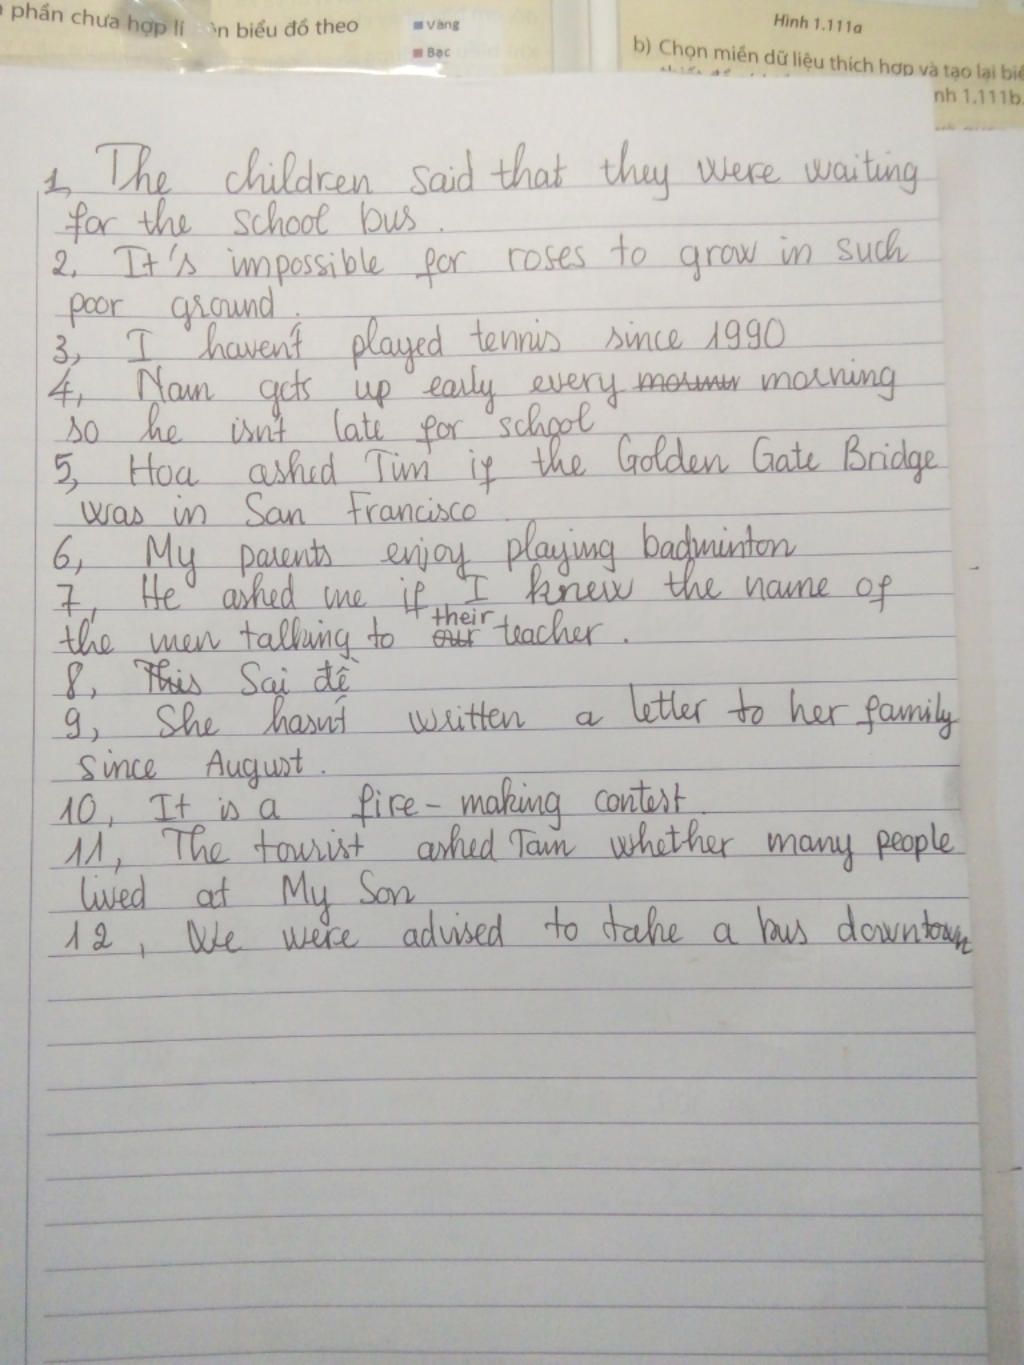 phần chưa hợp lí
ồn biểu đồ theo
Vàng
Bạc
Hình 1.111a
b) Chọn miền dữ liệu thích hợp và tạo lại biể
nh 1.111b.
1, The children said that they were waiting
for the school bus.
2, It's impossible for roses to grow in such
poor ground.
3, I haven't played tennis since 1990
4, Nam gets up early every morning
so he isn't late for school
5, Hoa asked Tim if the Golden Gate Bridge
was in San Francisco
6, My parents enjoy playing badminton
7, He asked me if I knew the name of
the men talking to our their teacher.
8, This Sai đề
9, She hasn't written a letter to her family
since August.
10, It is a fire-making contest
11, The tourist asked Tam whether many people
lived at My Son
12, We were advised to take a bus downtown